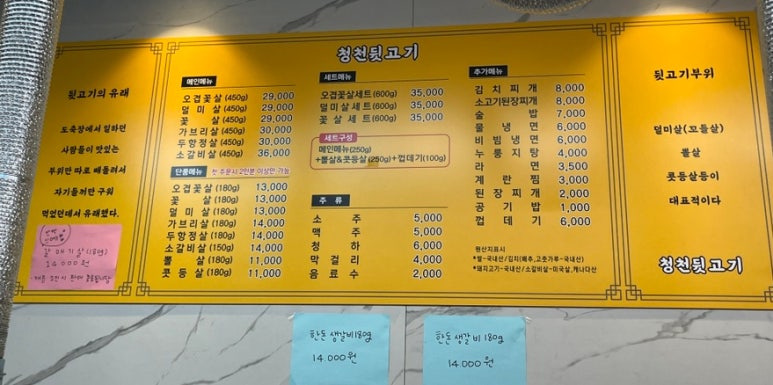 청천뒷고기
뒷고기의 유래
도축장에서 일하던
사람들이 맛있는
부위만 따로 빼돌려서
자기들끼만 구워
먹었던데서 유래했다.
메인메뉴
오겹꽃살 (450g) 29,000
덜미살 (450g) 29,000
꽃살 (450g) 29,000
가브리살 (450g) 30,000
두항정살 (450g) 30,000
소갈비살 (450g) 36,000
단품메뉴 첫 주문시 2인분 이상만 가능
오겹꽃살 (180g) 13,000
꽃살 (180g) 13,000
덜미살 (180g) 13,000
가브리살 (180g) 14,000
두항정살 (180g) 14,000
소갈비살 (150g) 14,000
뽈살 (180g) 11,000
콧등살 (180g) 11,000
세트메뉴
오겹꽃살세트 (600g) 35,000
덜미살세트 (600g) 35,000
꽃살세트 (600g) 35,000
세트구성
메인메뉴(250g)
+뽈살&콧등살(250g)+껍데기(100g)
주류
소주 5,000
맥주 5,000
청하 6,000
막걸리 4,000
음료수 2,000
추가메뉴
김치찌개 8,000
소고기된장찌개 8,000
술밥 7,000
물냉면 6,000
비빔냉면 6,000
누룽지탕 4,000
라면 3,500
계란찜 3,000
된장찌개 2,000
공기밥 1,000
껍데기 6,000
원산지표시
*쌀-국내산/김치(배추,고춧가루-국내산)
*돼지고기-국내산/소갈비살-미국살,캐나다산
뒷고기부위
덜미살(꼬들살)
뽈살
콧등살등이
대표적이다
청천뒷고기
갈매기살(180g)
14,000원
한돈 생갈비 180g
14.000원
한돈 생갈비 180g
14.000원